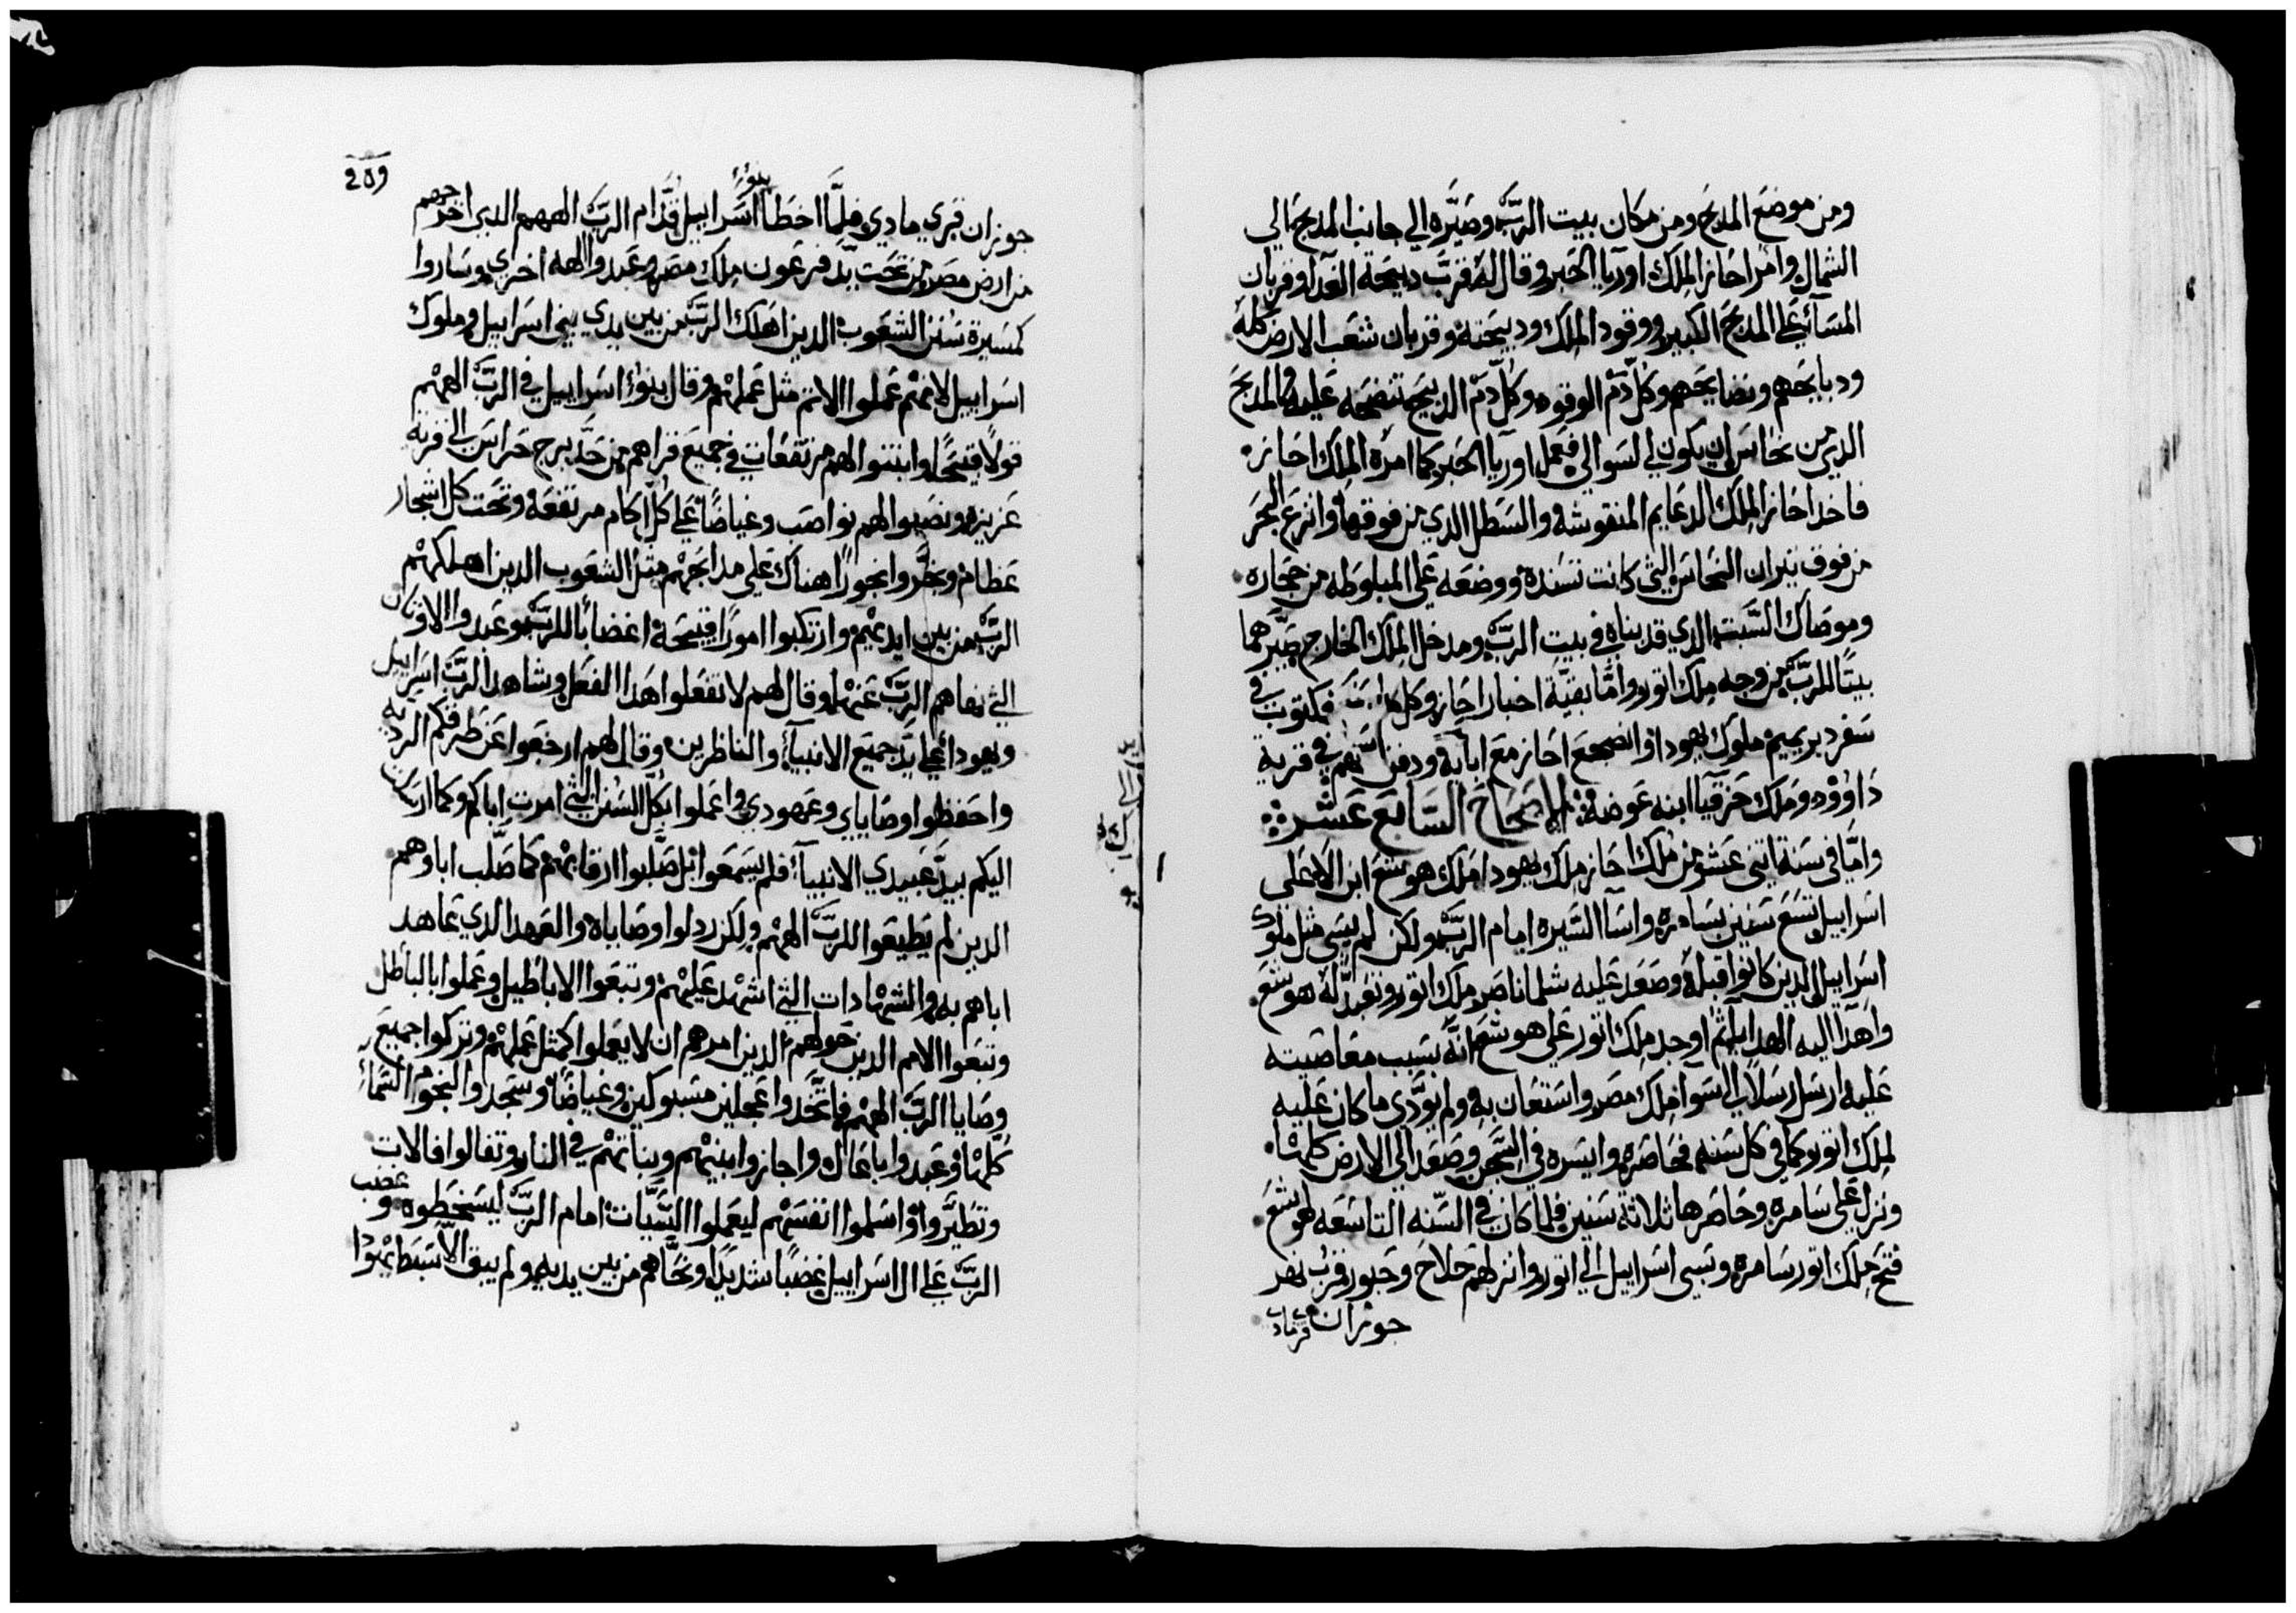 ومن موضع المدبح ومن مكان بيت الربّ وصَيَّره الي جانب المدبح الي
الشمال وامر احاز الملك اوريا الحبر وقال له قرّب دبيحة الغدا وقربان
المسآء علي المدبح الكبير ووقود الملك ودبيحته وقربان شعب الارض كله
ودبايحهم ونضايحهم وكل دمّ الوقود وكل دمّ الدبيح تنضحه عليه والمدبح
الدي من نحاس ان يكون لي لسوالي فعمل اوريا الحبر كما امره الملك احاز
فاخد احاز الملك الدعايم المنقوشه والسطل الدي من فوقها وانزع البحر
من فوق تيران النحاس التي كانت تسنده ووضعه علي المبلوطه من حجاره
وموصاك السَّبت الدي قد بناه في بيت الربّ ومدخل الملك الخارج صيَّرهما
بيتًا للربّ من وجه ملك اتور وامّا بقيّة اخبار احاز وكل فمكتوب في
سفر دبريميم ملوك يهودا واضجع احاز مع ابايه ودفن في قرية
داوُوْد وملك حزقيا ابنه عوضه الاصحاح السَّابع عَشر
وامّا في سنة اتني عشر من ملك احاز ملك يهودا ملك هوشع ابن الا علي
اسراييل تسع سنين بسامره واسآ السَّيره امام الربّ ولكن لم يسي مثل ملوك
اسراييل الدين كانوا قبله وصعد عليه شلماناصر ملك اتور وتعبّد له هوشع
واهدآ اليه الهدايا ثم اوجد ملك اتور علي هوشع انّه بسبب معاصيته
عليه ارسل رسلا الي سوا ملك مصر واستعان به ولم يودّي ما كان عليه
لملك اتور كما في كل سنه فحاصره وايسره في السّجن وصعد الي الارض كلها
ونزل علي سامره وحاصرها تلاتة سنين فلما كان في السّنه التاسعه لهوشع
فتح ملك اتور سامره وسبي اسراييل الي اتور وانزلهم حلاح وحبور قرب نهر
جوزان
209
جوزان قري مادي فلمَّا اخطا بنو اسراييل قدّام الربّ الههم الدي اخرجهم
من ارض مصر من تحت يد فرعون ملك مصر وعبدوا الهه اخري وساروا
كمسيرة سنن الشعوب الدين اهلك الربّ من بين يدي بني اسراييل وملوك
اسراييل لانهم عملوا الاتم مثل عملهم وقال بنوا اسراييل في الربّ الههم
قولًا قبيحًا وابتنوا لهم مرتفعات في جميع قراهم من حدّ برج حراس الي قرية
عزيزه ونصبوا لهم نواصب وغياضًا علي كل اكام مرتفعه وتحت كل اشجار
عظام وبخّروا بخورًا هناك علي مدابحهم مثل الشعوب الدين اهلكهم
الربّ من بين ايديهم وارتكبوا امورًا قبيحة اغضابًا للربّ وعبدوا الاوثان
التي نهاهم الربّ عنها وقال لهم لا تفعلوا هدا الفعل وشاهد الربّ اسراييل
ويهودا علي يدّ جميع الانبيآء والناظرين وقال لهم ارجعوا عن طرقكم الرديه
واحفظوا وصاياي وعهودي واعملوا بكل السّنن التي امرت اباكم وكما ارسلت
اليكم بيدّ عبيدي الانبيآء فلم يسمعوا بل صَلّبوا ارقابهم كما صَلّب اباوهم
الدين لم يطيعوا للربّ الههم ولكن ردلوا وصاياه والعهد الدي عاهد
اباهم به والشهادات التي اشهد عليهم وتبعوا الاباطيل وعملوا بالباطل
وتبعوا الامم الدين حولهم الدين امرهم ان لا يعملوا كمثل عملهم وتركوا جميع
وصايا الربّ الههم فاتّخدوا عجلين مسبوكين وغياضًا وسجدوا لنجوم السّمآء
كلها وعبدوا باعال واجازوا ابنيهم وبناتهم في النار وتفالوا فالات
وتطيَّروا واسلموا انفسهم ليعملوا السَّيّات امام الربّ ليسخطوه وغضب
الربّ علي ال اسراييل غضبًا شديدًا ونحّاهم من بين يديه ولم يبق الّا سبط يهودا